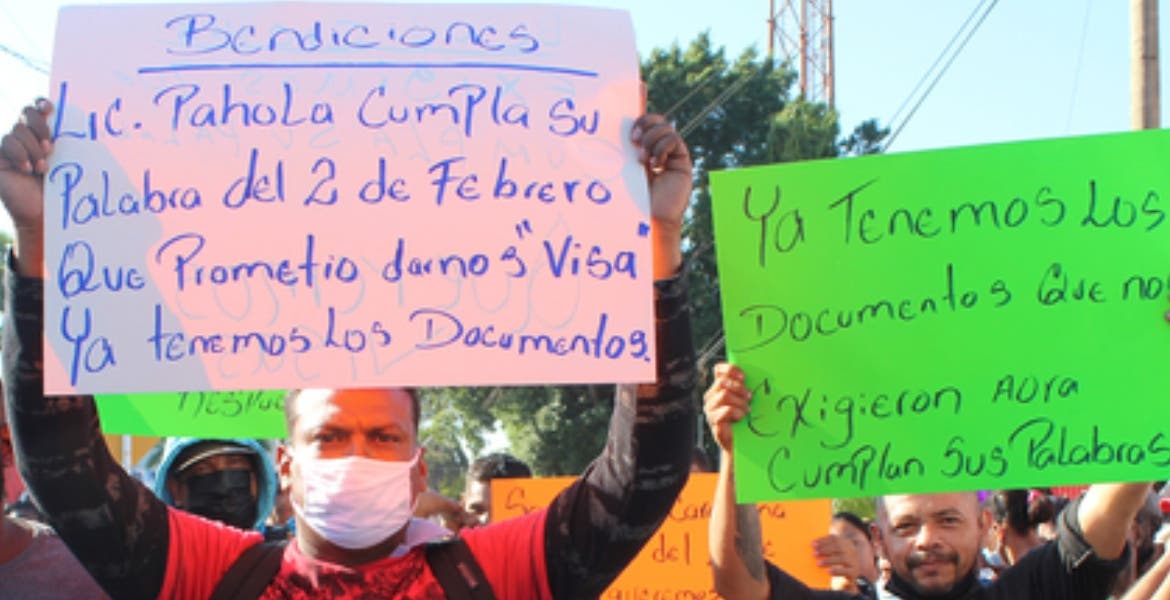 Bendiciones
Lic. Pahola Cumpla Su
Palabra del 2 de Febrero
Que Prometio darnos "Visa"
Ya tenemos Los Documentos.
Ya Tenemos Los
Documentos Que nos
Exigieron Aora
Cumplan Sus Palabras
del